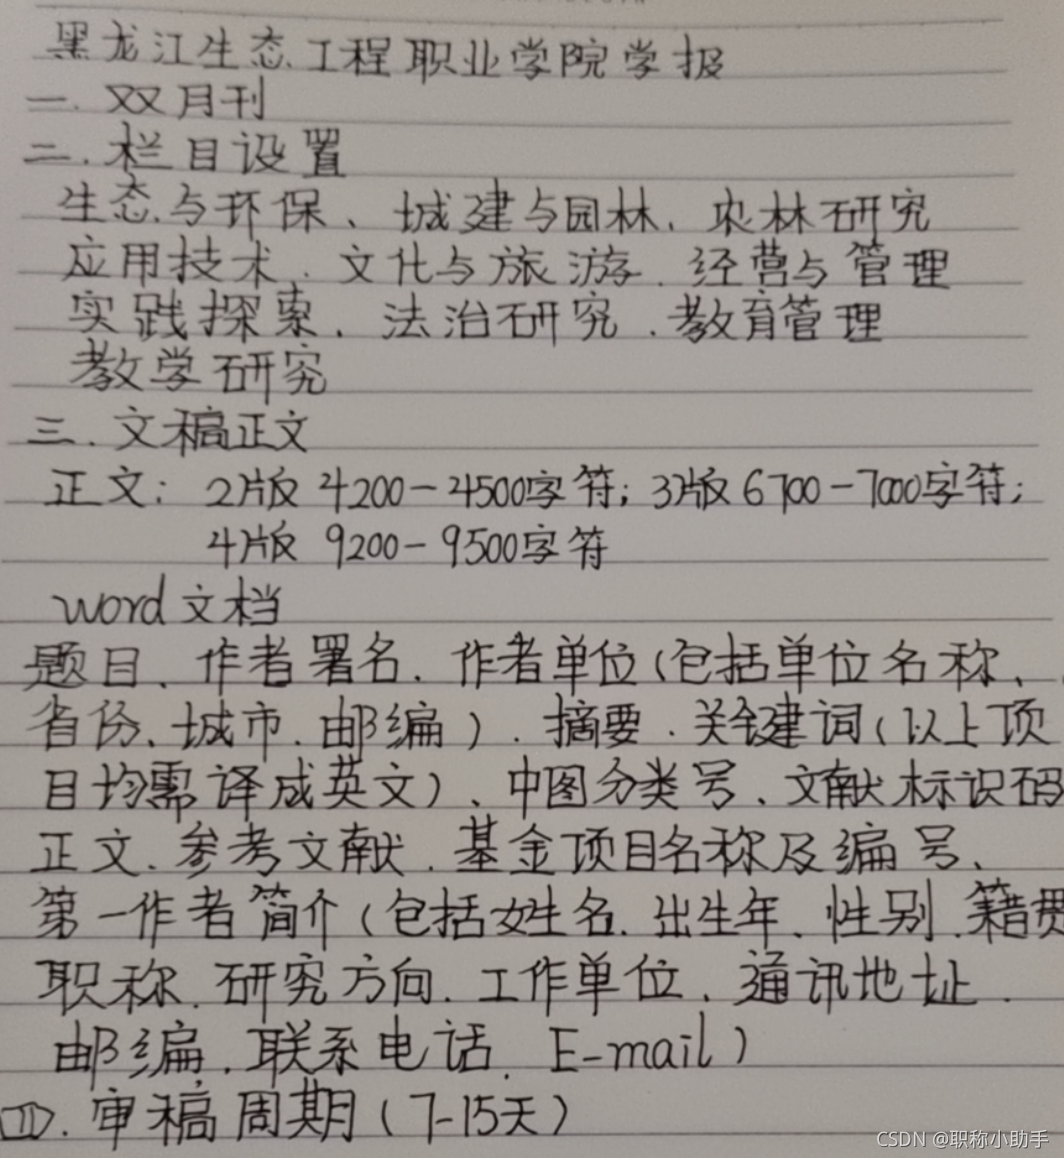 黑龙江生态工程职业学院学报
一.双月刊
二.栏目设置
生态与环保、城建与园林、农林研究
应用技术、文化与旅游、经营与管理
实践探索、法治研究、教育管理
教学研究
三.文稿正文
正文：2版 4200-4500字符；3版 6700-7000字符；
4版 9200-9500字符
word 文档
题目、作者署名、作者单位（包括单位名称、
省份、城市、邮编）、摘要、关键词（以上项
目均需译成英文）、中图分类号、文献标识码
正文、参考文献、基金项目名称及编号、
第一作者简介（包括姓名、出生年、性别、籍贯
职称、研究方向、工作单位、通讯地址、
邮编、联系电话、E-mail）
四.审稿周期（7-15天）
CSDN @职称小助手